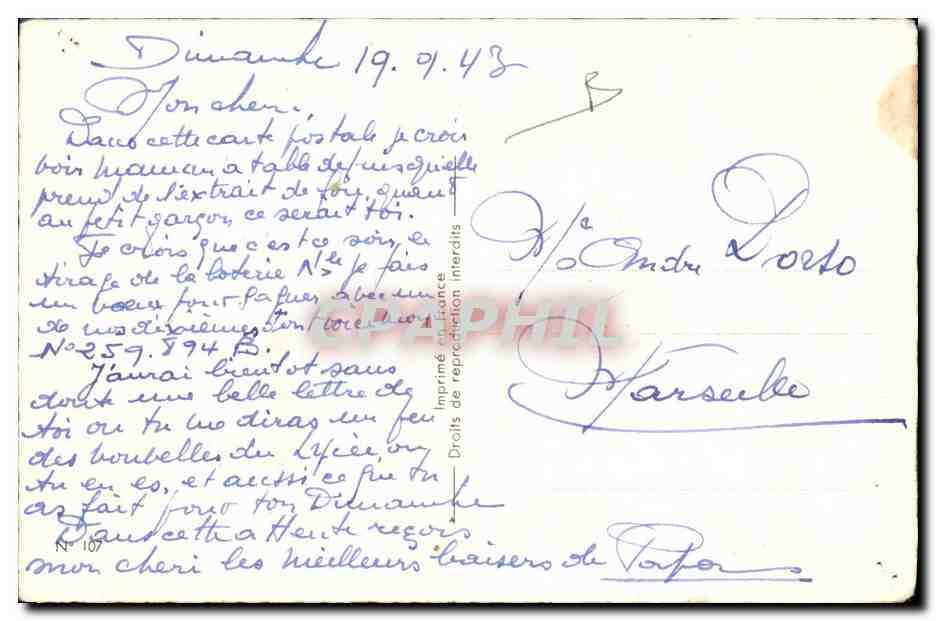 Dimanche 19.9.43
Mon cheri.
Dans cette carte postale je crois
voir maman à table depuis qu'elle
prend de l'extrait de foie, quant
au petit garçon ce serait toi.
Je crois que c'est ce soir le
tirage de la loterie Nle je fais
un voeux pour gagner avec un
de mes dixièmes dont voici mon
No 259.894 B.
J'aurai bientot sans
doute une belle lettre de
toi ou tu me diras un peu
des nouvelles du Lycée, ou
tu en es, et aussi ce que tu
as fait pour ton Dimanche
Dans cette attente reçois
mon cheri les meilleurs baisers de Papa
N° 107
Imprimé en France
Droits de reproduction interdits
CPAPHIL
André Dorso
Marseille